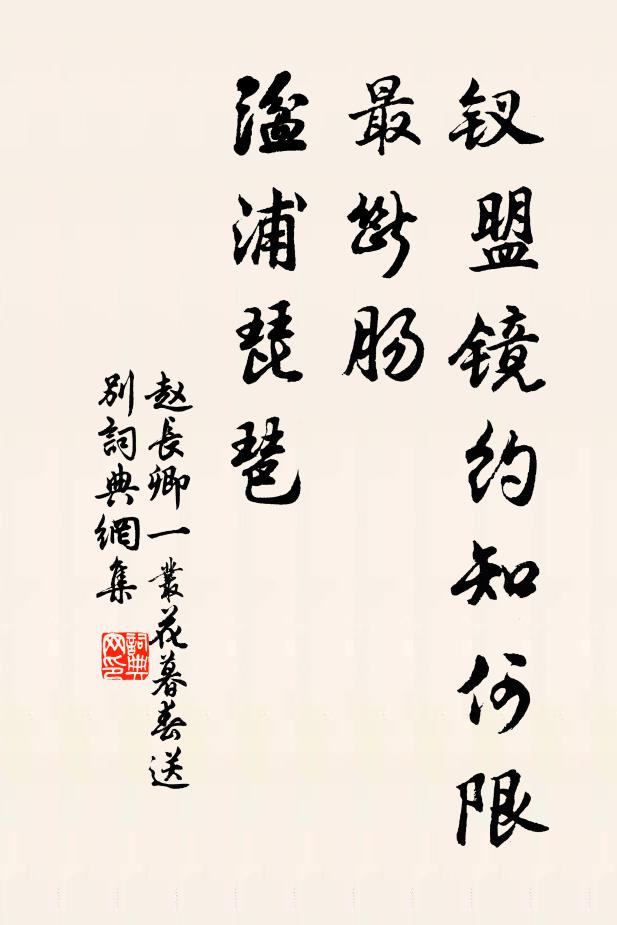 钗盟镜约知何限
最断肠
湓浦琵琶
赵长卿一丛花暮春送
别詞典網集
詞典
网印